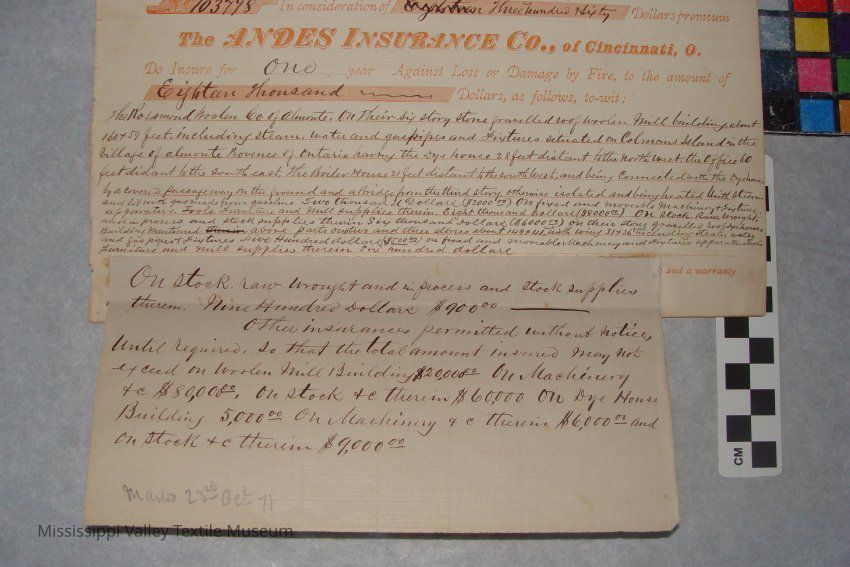 No 103778 In consideration of Three hundred & sixty Dollars premium
The ANDES INSURANCE CO., of Cincinnati, O.
Do Insure for One year Against Loss or Damage by Fire, to the amount of
Eighteen Thousand Dollars, as follows, to-wit:
The Rosamond Woolen Co of Almonte, On Their six story stone gravelled roof woolen Mill building, about
160 x 59 feet including steam, water and gas pipes and Fixtures situated on Colmans Island in the
Village of Almonte Province of Ontario having the Dye house 28 feet distant to the North West the Office 60
feet distant to the south east. The Boiler House 21 feet distant to the south West, and being Connected with the Dyehouse
by a covered passageway on the ground and a bridge from the third story, otherwise isolated and being heated With steam
and lit with gas made from gasoline Two thousand Dollars ($2000 00) On fixed and moveable Machinery & Fixtures
apparatus Tools Furniture and Mill supplies therein Eight thousand Dollars ($8000 00) On Stock Raw Wrought
and in process and stock supplies therein Six thousand dollars, ($6000 00) on their stone gravelled roof Dyehouse
Building Mentioned therein above parts one two and three stories about including steam water
and gas pipes & Fixtures Five Hundred dollars ($500 00) on fixed and moveable Machinery and Fixtures apparatus Tools
Furniture and Mill supplies therein Six hundred dollars
and a warranty
On stock. raw wrought and in process and stock supplies
therein. Nine Hundred Dollars $900 00
Other insurances permitted without notice,
Until required, so that the total amount insured May not
exceed on Woolen Mill Building $20,000 00 On Machinery
& c $80,000 00. On stock & c therein $60000 On Dye House
Building 5,000 00 On Machinery & c therein $6,000 00 and
On stock & c therein $9,000 00
23rd Oct 71
CM
Mississippi Valley Textile Museum